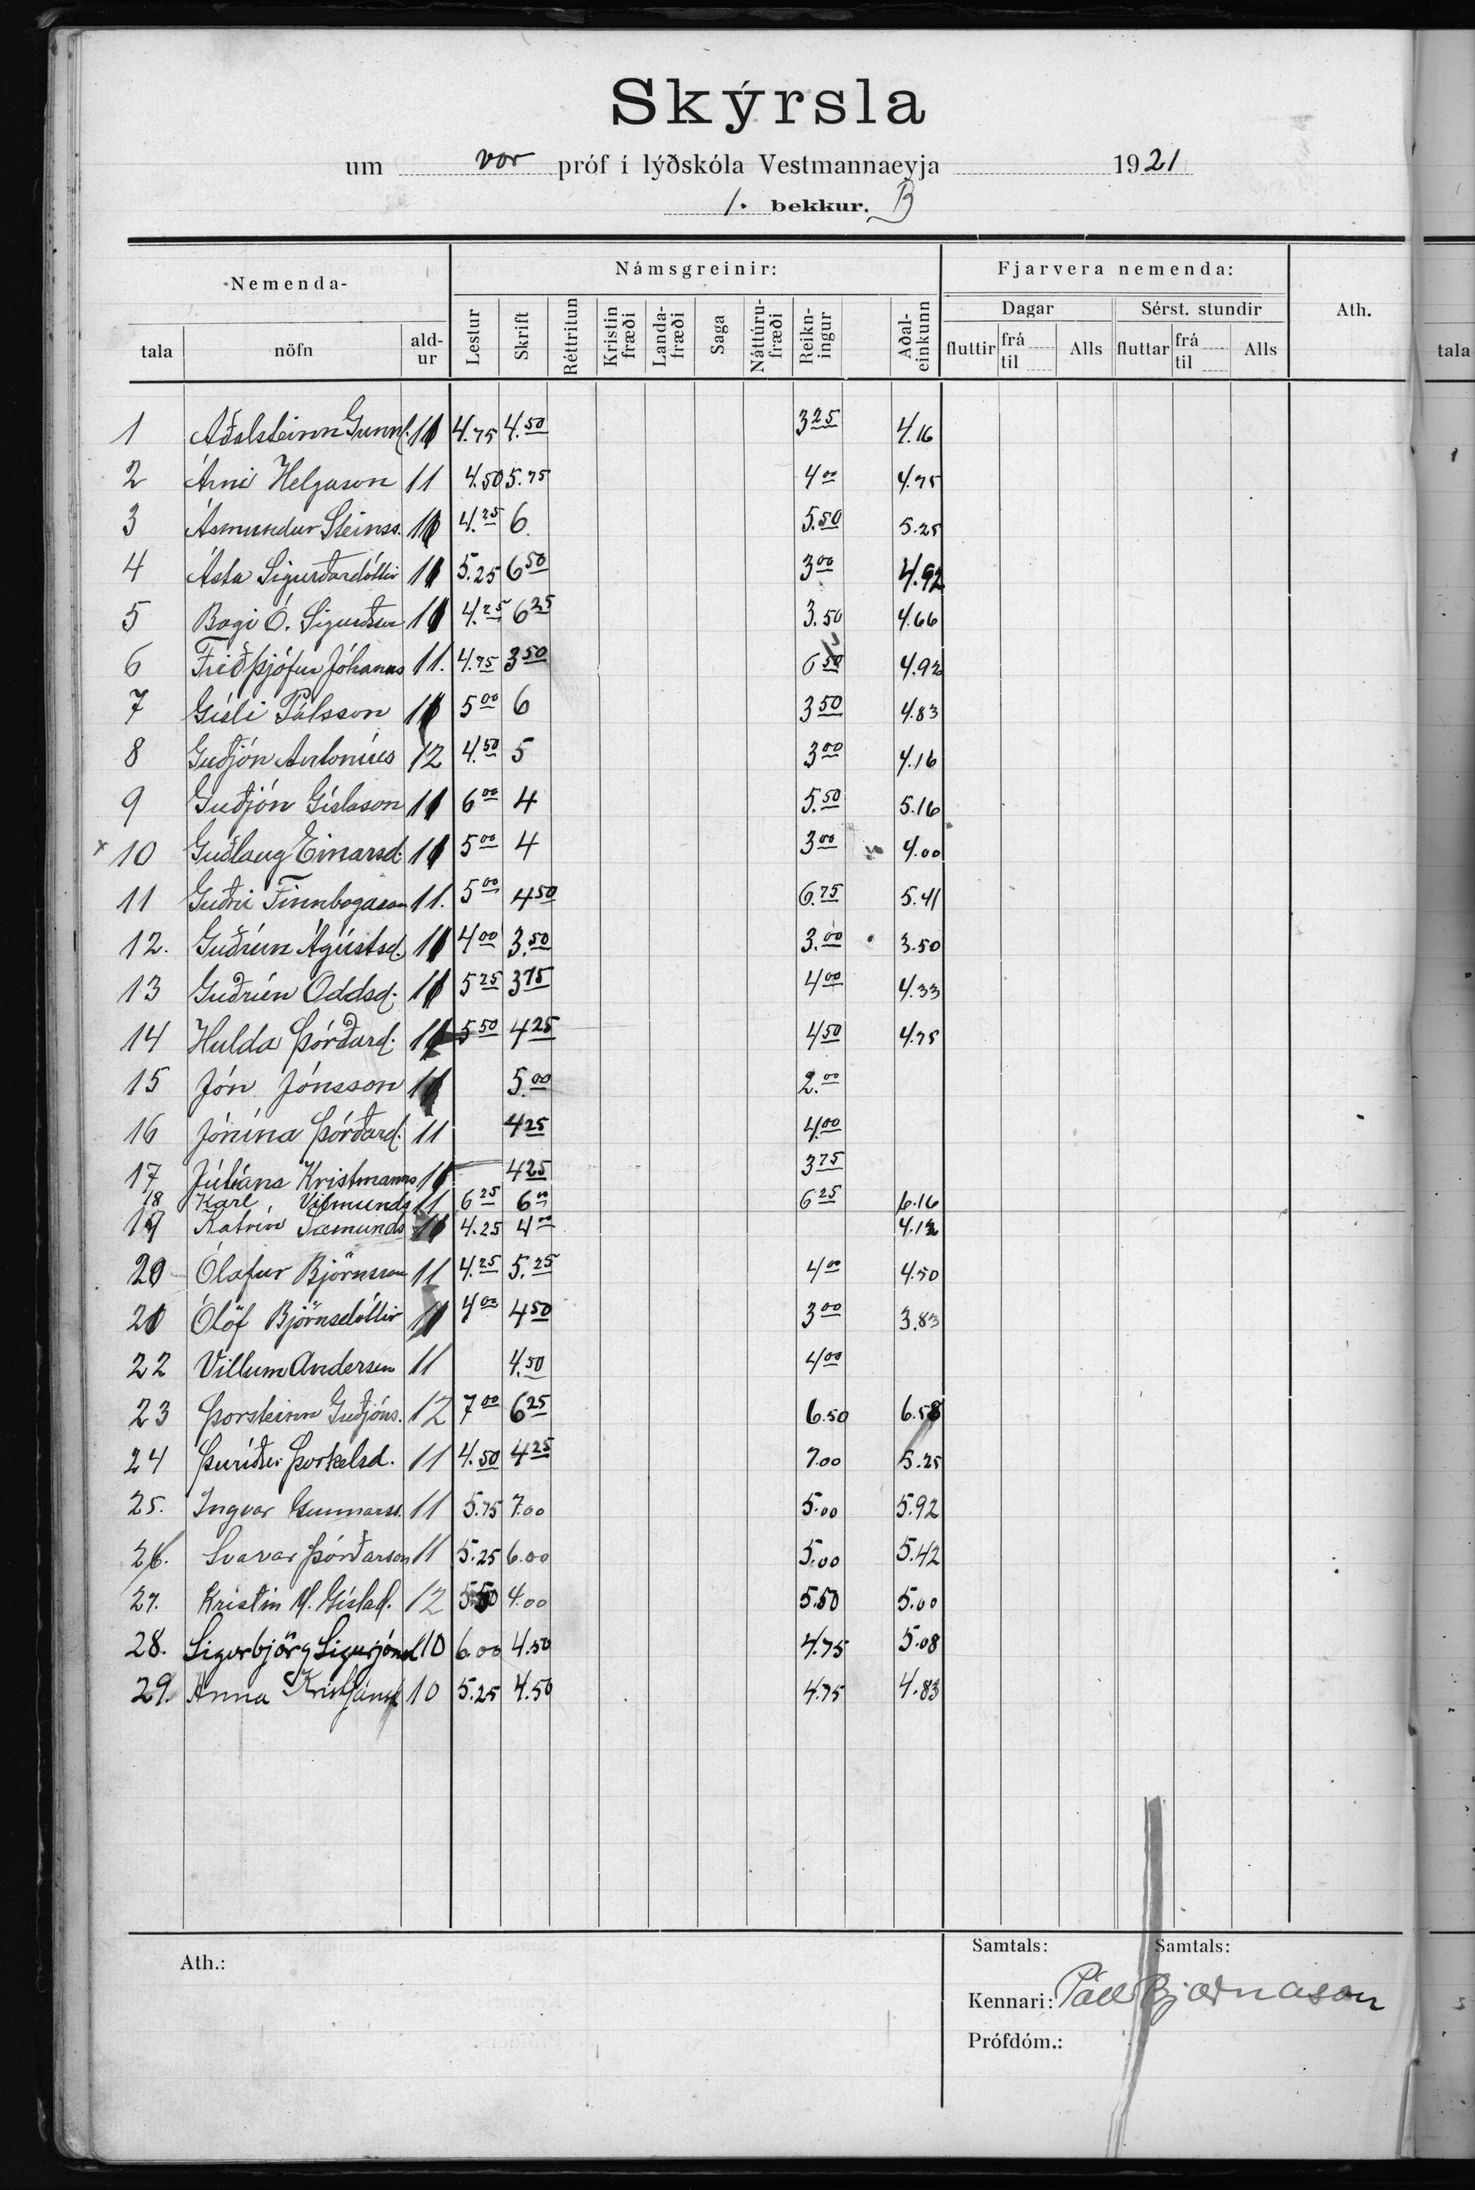 Skýrsla
um vor próf í lýðskóla Vestmannaeyja 1921
1. bekkur. B
Nemenda- Námsgreinir: Fjarvera nemenda: Ath.
Dagar Sérst. stundir
tala nöfn ald-ur Lestur Skrift Réttritun Kristin fræði Landa-fræði Saga Náttúru-fræði Reikn-ingur Aðal-einkunn fluttir frá til Alls fluttar frá til Alls tala
1 Aðalsteinn Gunnl. 11 4.75 4.50 3 25 4.16
2 Árni Helgason 11 4.50 5.75 4 00 4.75
3 Ásmundur Steinss. 11 4.25 6. 5.50 5.25
4 Ásta Sigurðardóttir 11 5.25 6 50 3 00 4.92
5 Bogi Ó. Sigurðsson 11 4.25 6 25 3.50 4.66
6 Friðþjófur Jóhanns 11. 4.75 3 50 6 50 4.92
7 Gísli Pálsson 11 5 00 6 3 50 4.83
8 Guðjón Antoníus 12 4.50 5 3 00 4.16
9 Guðjón Gíslason 11 6 00 4 5.50 5.16
x 10 Guðlaug Einarsd. 11 5 00 4 3 00 4.00
11 Guðni Finnbogason 11. 5 00 4 50 6.75 5.41
12. Guðrún Ágústsd. 11 4 00 3.50 3.00 3.50
13 Guðrún Oddsd. 11 5 25 3 75 4 00 4.33
14 Hulda Þórðard. 11 5 50 4 25 4 50 4.75
15 Jón Jónsson 11 5.00 2.00
16 Jónína Þórðard. 11 4 25 4.00
17 Júlíana Kristmanns 11 4 25 3 75
18 Karl Vilmunds 11 6 25 6 00 6 25 6.16
19 Katrín Sæmunds 11 4.25 4 00 4.12
20 Ólafur Björnsson 11 4.25 5.25 4 00 4.50
21 Ólöf Björnsdóttir 11 4 00 4 50 3 00 3.83
22 Villum Andersen 11 4.50 4 00
23 Þorsteinn Guðjóns. 12 7 00 6 25 6.50 6.58
24 Þuríður Þorkelsd. 11 4.50 4 25 7.00 5.25
25. Ingvar Gunnarss. 11 5.75 7.00 5.00 5.92
26. Svavar Þórðarson 11 5.25 6.00 5.00 5.42
27. Kristín M. Gíslad. 12 5.50 4.00 5.50 5.00
28. Sigurbjörg Sigurjónsd 10 6.00 4.50 4.75 5.08
29. Anna Kristjánsd 10 5.25 4.50 4.75 4.83
Ath.:
Samtals: Samtals:
Kennari: Páll Bjarnason
Prófdóm.: